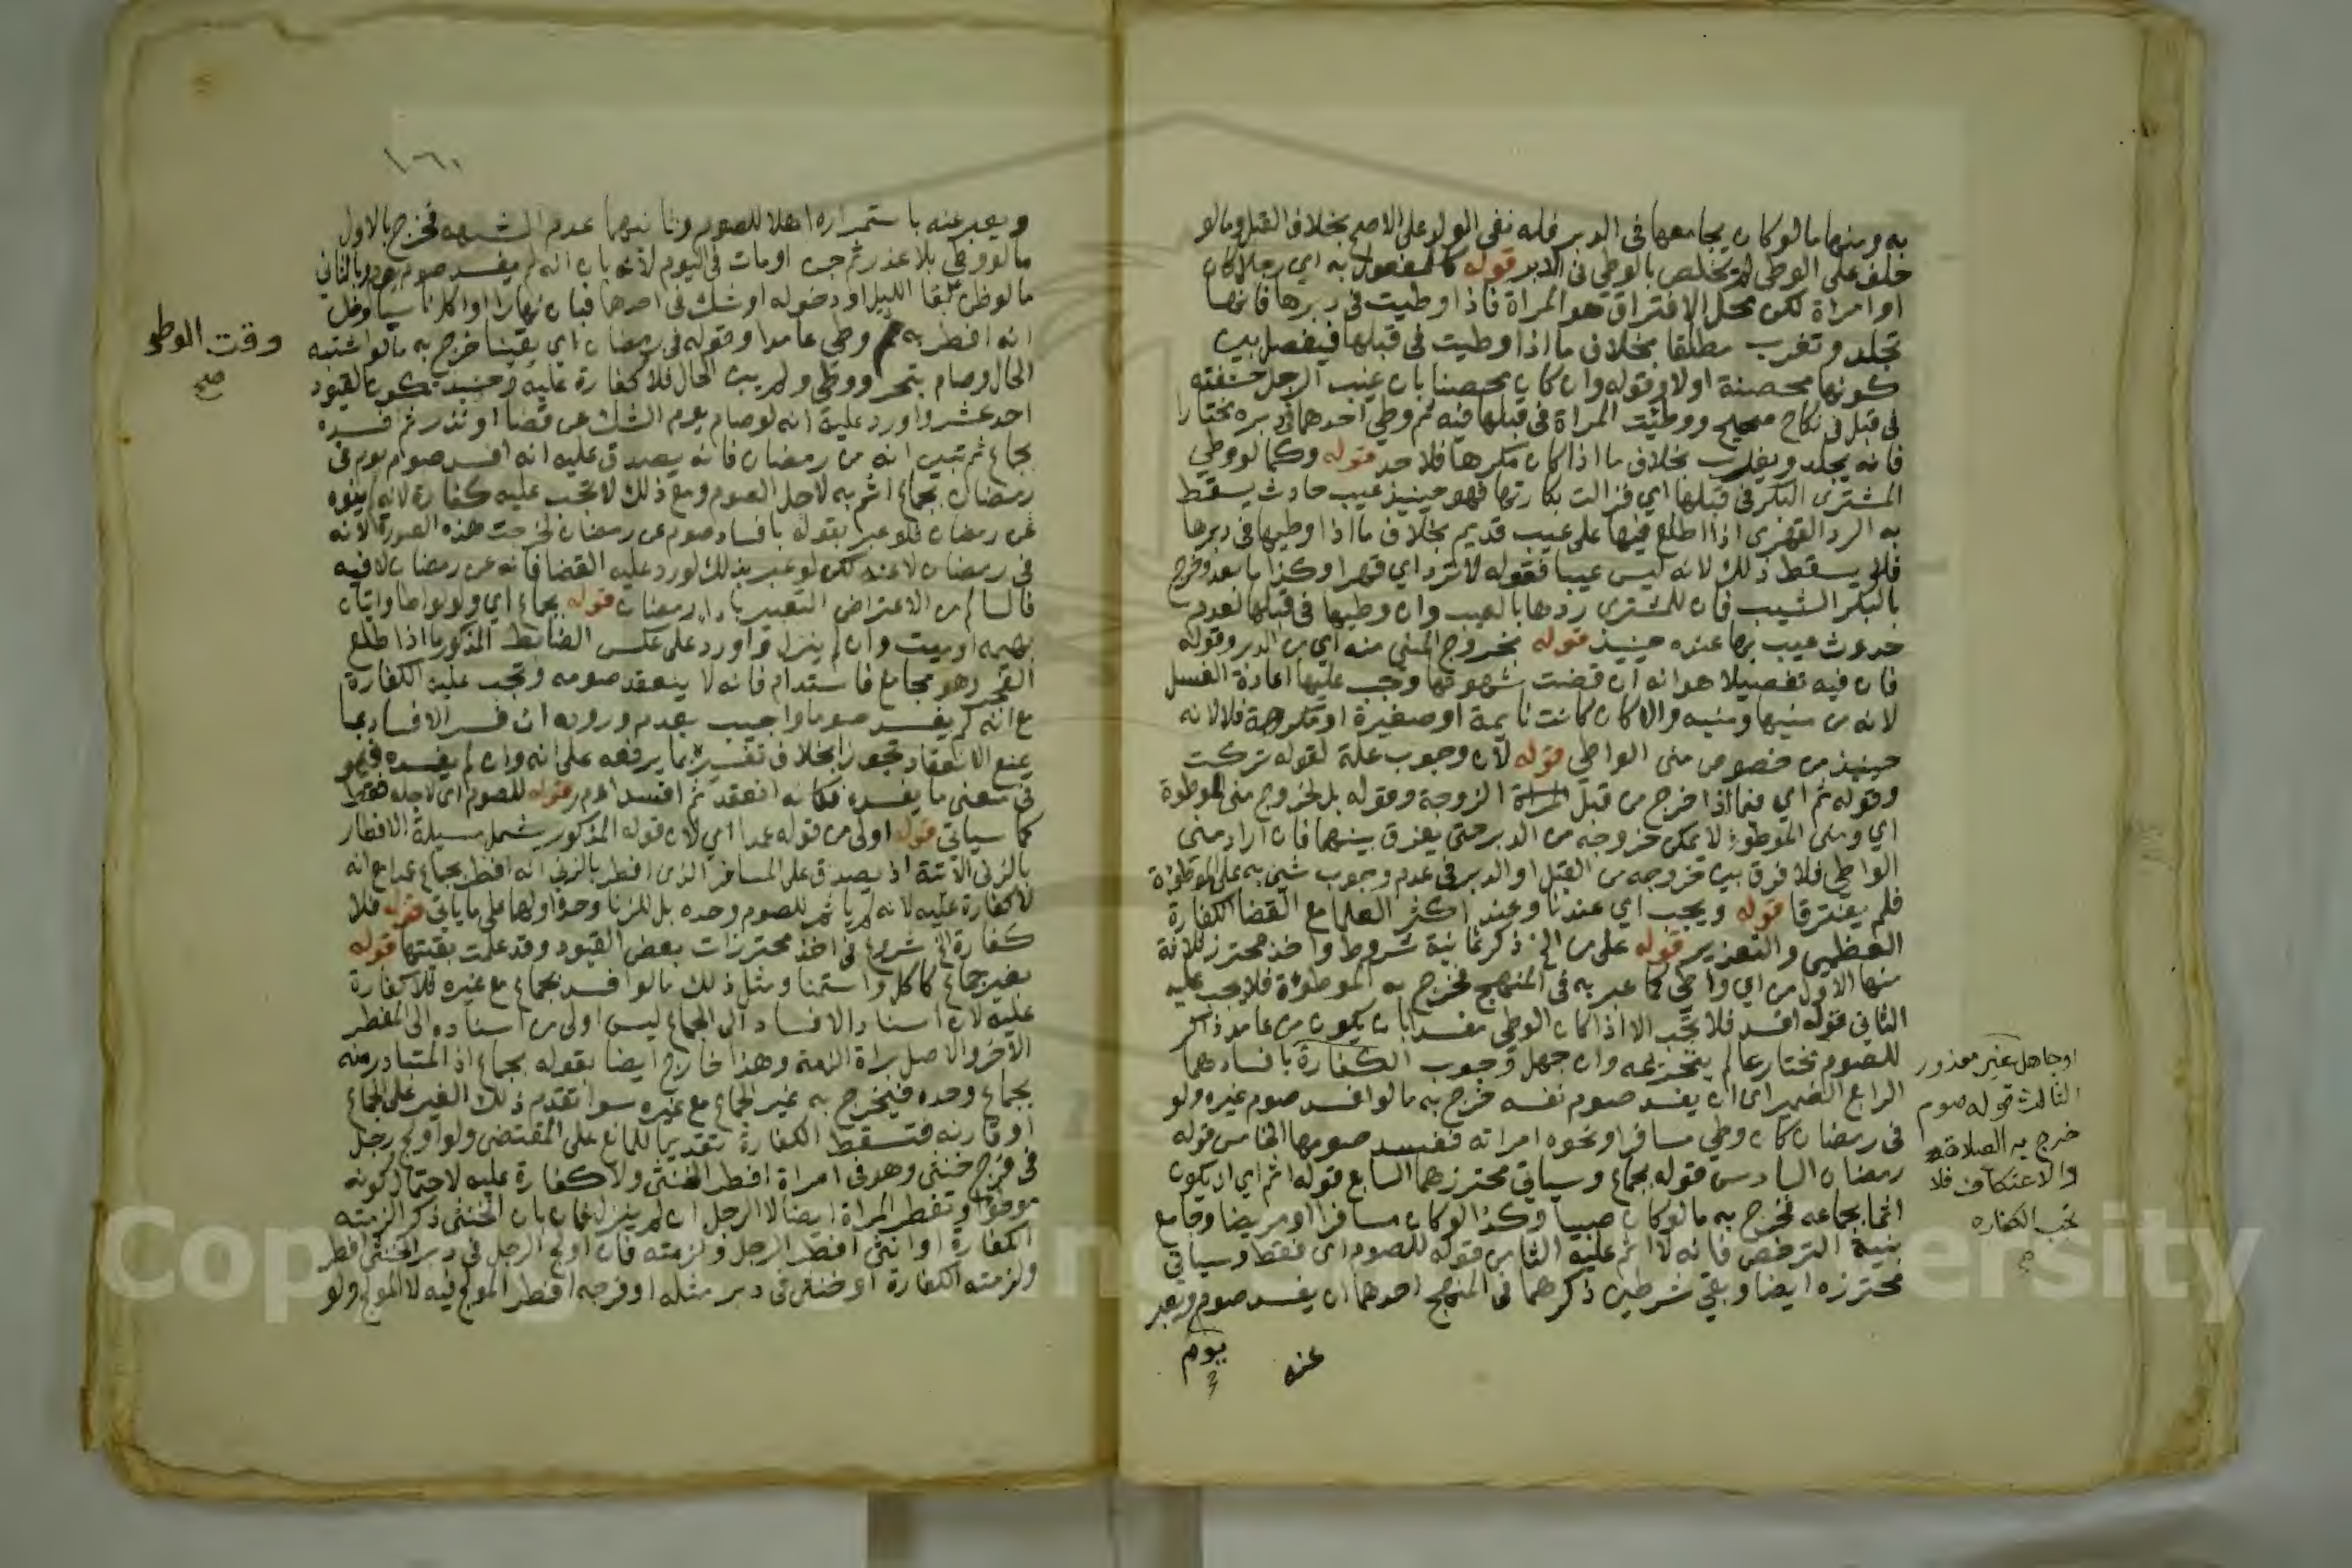 به ومنها ما لو كان يجامعها في الدبر فله نفي الولد على الاصح بخلاف القبل وما لو
حلف على الوطي لم يتخلص بالوطي في الدبر قوله كالمفعول به اي رجلا كان
او امراة لكن محل الافتراق هو المراة فاذا وطيت في دبرها فانها
تجلد وتغرب مطلقا بخلاف ما اذا وطيت في قبلها فيفصل بين
كونها محصنة اولا وقوله وان كان محصنا بان غيب الرجل حشفته
في قبل في نكاح صحيح ووطئت المراة في قبلها فيه ثم وطي احدهما في دبره مختارا
فانه يجلد ويغرب بخلاف ما اذا كان مكرها فلا حد قوله وكما لو وطي
المشتري البكر في قبلها اي فزالت بكارتها فهو حينيذ عيب حادث يسقط
به الرد القهري اذا اطلع فيها على عيب قديم بخلاف ما اذا وطيها في دبرها
فلا يسقط ذلك لانه ليس عيبا فقوله لا ترد اي قهرا وكذا ما بعد وخرج
بالبكر الثيب فان للمشتري ردها بالعيب وان وطيها في قبلها لعدم
حدوث عيب بها عنده حينيذ قوله بخروج المني منه اي من الدبر وقوله
فان فيه تفصيلا هو انه ان قضت شهوتها وجب عليها اعادة الغسل
لانه من منيها ومنيه والا كان كانت نايمة او صغيرة او مكرهة فلا لانه
حينيذ من خصوص مني الواطي قوله لان وجوب علة لقوله تركت
وقوله ثم اي فيما اذا خرج من قبل المراة الزوجة وقوله بل لخروج مني الموطوة
اي ومني الموطوة لا يمكن خروجه من الدبر حتى يفرق بينهما فان اراد مني
الواطي فلا فرق بين خروجه من القبل او الدبر في عدم وجوب شي به على الموطوة
فلم يفترقا قوله ويجب اي عندنا وعند اكثر العلما مع القضا الكفارة
العظمى والتعزير قوله على من الخ ذكر ثمانية شروط واخذ محترز ثلاثة
منها الاول من اي واطي كما عبر به في المنهج فخرج به الموطوة فلا يجب عليه
الثاني قوله افسد فلا تجب الا اذا كان الوطي مفسدا بان يكون من عامد ذاكر
للصوم مختار عالم بتحريمه وان جهل وجوب الكفارة بافسادهما
الرابع الضمير اي ان يفسد صوم نفسه خرج به ما لو افسد صوم غيره ولو
في رمضان كان وطي مسافر او نحوه امراته ففسد صومها الخامس قوله
رمضان السادس قوله بجماع وسياتي محترزهما السابع قوله اثم اي ان يكون
اثما بجماعه فخرج به ما لو كان صبيا وكذا لو كان مسافرا او مريضا وجامع
بنية الترخص فانه لا اثم عليه الثامن قوله للصوم اي فقط وسياتي
محترزه ايضا وبقي شرطين ذكرهما في المنهج احدهما ان يفسد صوم ويعبر
يوم
عنه
او جاهل غير معذور
الثالث قوله صوم
خرج به الصلاة
والاعتكاف فلا
تجب الكفاره
ويعبر عنه باستمراره اهلا للصوم وثانيهما عدم الشبهه فخرج بالاول
ما لو وطي بلا عذر ثم جن او مات في اليوم لانه بان انه لم يفسد صوم يوم وبالثاني
ما لو ظن بقا الليل او دخوله او شك في احدهما فبان نهارا او اكل ناسيا وظن
انه افطر به ثم وطي عامدا وقوله في رمضان اي يقينا خرج به ما لو اشتبه
الحال وصام بتحر ووطي ولم يبن الحال فلا كفارة عليه وحينيذ تكون القيود
احد عشر واورد عليه انه لو صام يوم الشك عن قضا او نذر ثم افسده
بجماع ثم تبين انه من رمضان فانه يصدق عليه انه افسد صوم يوم في
رمضان بجماع اثم به لاجل الصوم ومع ذلك لا تجب عليه كفارة لانه لم ينوه
عن رمضان فلو عبر بقوله بافساد صوم عن رمضان لخرجت هذه الصورة لانه
في رمضان لا عنه لكن لو عبر بذلك لورد عليه القضا فانه عن رمضان لا فيه
فالسالم من الاعتراض التعبير باداء رمضان قوله بجماع اي ولو لواطا واتيان
بهيمه او ميت وان لم ينزل واورد على عكس الضابط المذكور ما اذا طلع
الفجر وهو مجامع فاستدام فانه لا ينعقد صومه وتجب عليه الكفارة
مع انه لم يفسد صوما واجيب بعدم وروده ان فسر الافساد بما
يمنع الانعقاد تجوزا بخلاف تفسيره بما يرفعه على انه وان لم يفسده فهو
في معنى ما يفسده فكانه انعقد ثم افسد قوله للصوم اي لاجله فقط
كما سياتي قوله اولى من قوله عمدا اي لان قوله المذكور يشمل مسيلة الافطار
بالزنى الاتية اذ يصدق على المسافر الذي افطر بالزنى انه افطر بجماع عمدا مع انه
لا كفارة عليه لانه لم ياثم للصوم وحده بل للزنا وحده او لهما على ما ياتي قوله فلا
كفارة الخ شروع في اخذ محترزات بعض القيود وقد علمت بقيتها قوله
بغير جماع كاكل واستمنا ومثل ذلك ما لو افسد بجماع مع غيره فلا كفارة
عليه لان اسناد الافساد الى الجماع ليس اولى من اسناده الى المفطر
الاخر والاصل براة الذمة وهذا خارج ايضا بقوله بجماع اذ المتبادر منه
بجماع وحده فيخرج به غير الجماع مع غيره سوا تقدم ذلك الغير على الجماع
او قارنه فتسقط الكفارة تقديما للمانع على المقتضى ولو اولج رجل
في فرج خنثى وهو في امراة افطر الخنثى ولا كفارة عليه لاحتمال كونه
موطوا وتفطر المراة ايضا لا الرجل ان لم ينزل فان بان الخنثى ذكرا لزمته
الكفارة او انثى افطر الرجل ولزمته فان اولج الرجل في دبر الخنثى افطر
ولزمته الكفارة او خنثى في دبر مثله او فرجه افطر المولج فيه لا المولج ولو
وقت الوطي
صح